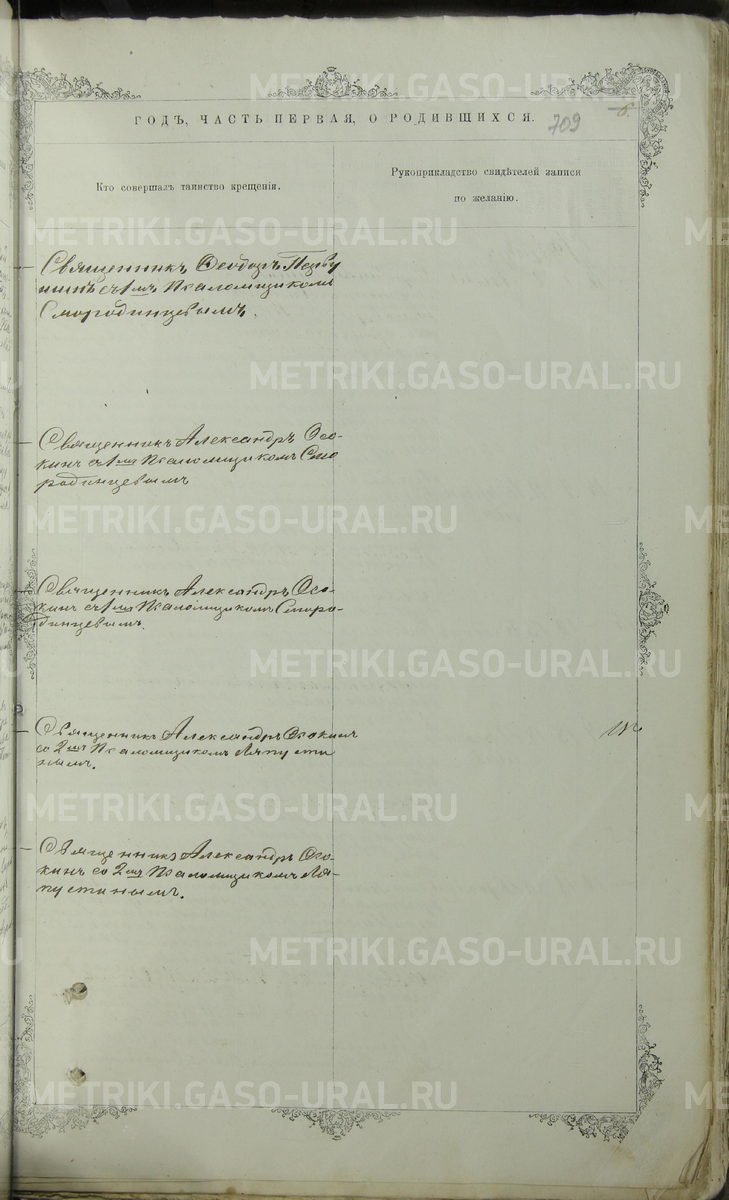 METRIKI.GASO-URAL.RU
ГОДЪ, ЧАСТЬ ПЕРВАЯ, О РОДИВШИХСЯ.
709
Кто совершалъ таинство крещенія.
Рукоприкладство свидѣтелей записи
по желанію.
METRIKI.GASO-URAL.RU
Священникъ Ѳеодоръ Перву
шинъ съ 1мъ Псаломщикомъ
Смородинцевымъ.
METRIKI.GASO-URAL.RU
METRIKI.GASO-URAL.RU
Священникъ Александръ Осо-
кинъ съ 1мъ Псаломщикомъ Смо
родинцевымъ
METRIKI.GASO-URAL.RU
METRIKI.GASO-URAL.RU
Священникъ Александръ Осо-
кинъ съ 1мъ Псаломщикомъ Сморо-
динцевымъ.
METRIKI.GASO-URAL.RU
Священникъ Александръ Осокинъ
со 2мъ Псаломщикомъ Ляпусти
нымъ.
METRIKI.GASO-URAL.RU
METRIKI.GASO-URAL.RU
Священникъ Александръ Осо-
кинъ со 2мъ Псаломщикомъ Ля-
пустинымъ.
METRIKI.GASO-URAL.RU
METRIKI.GASO-URAL.RU